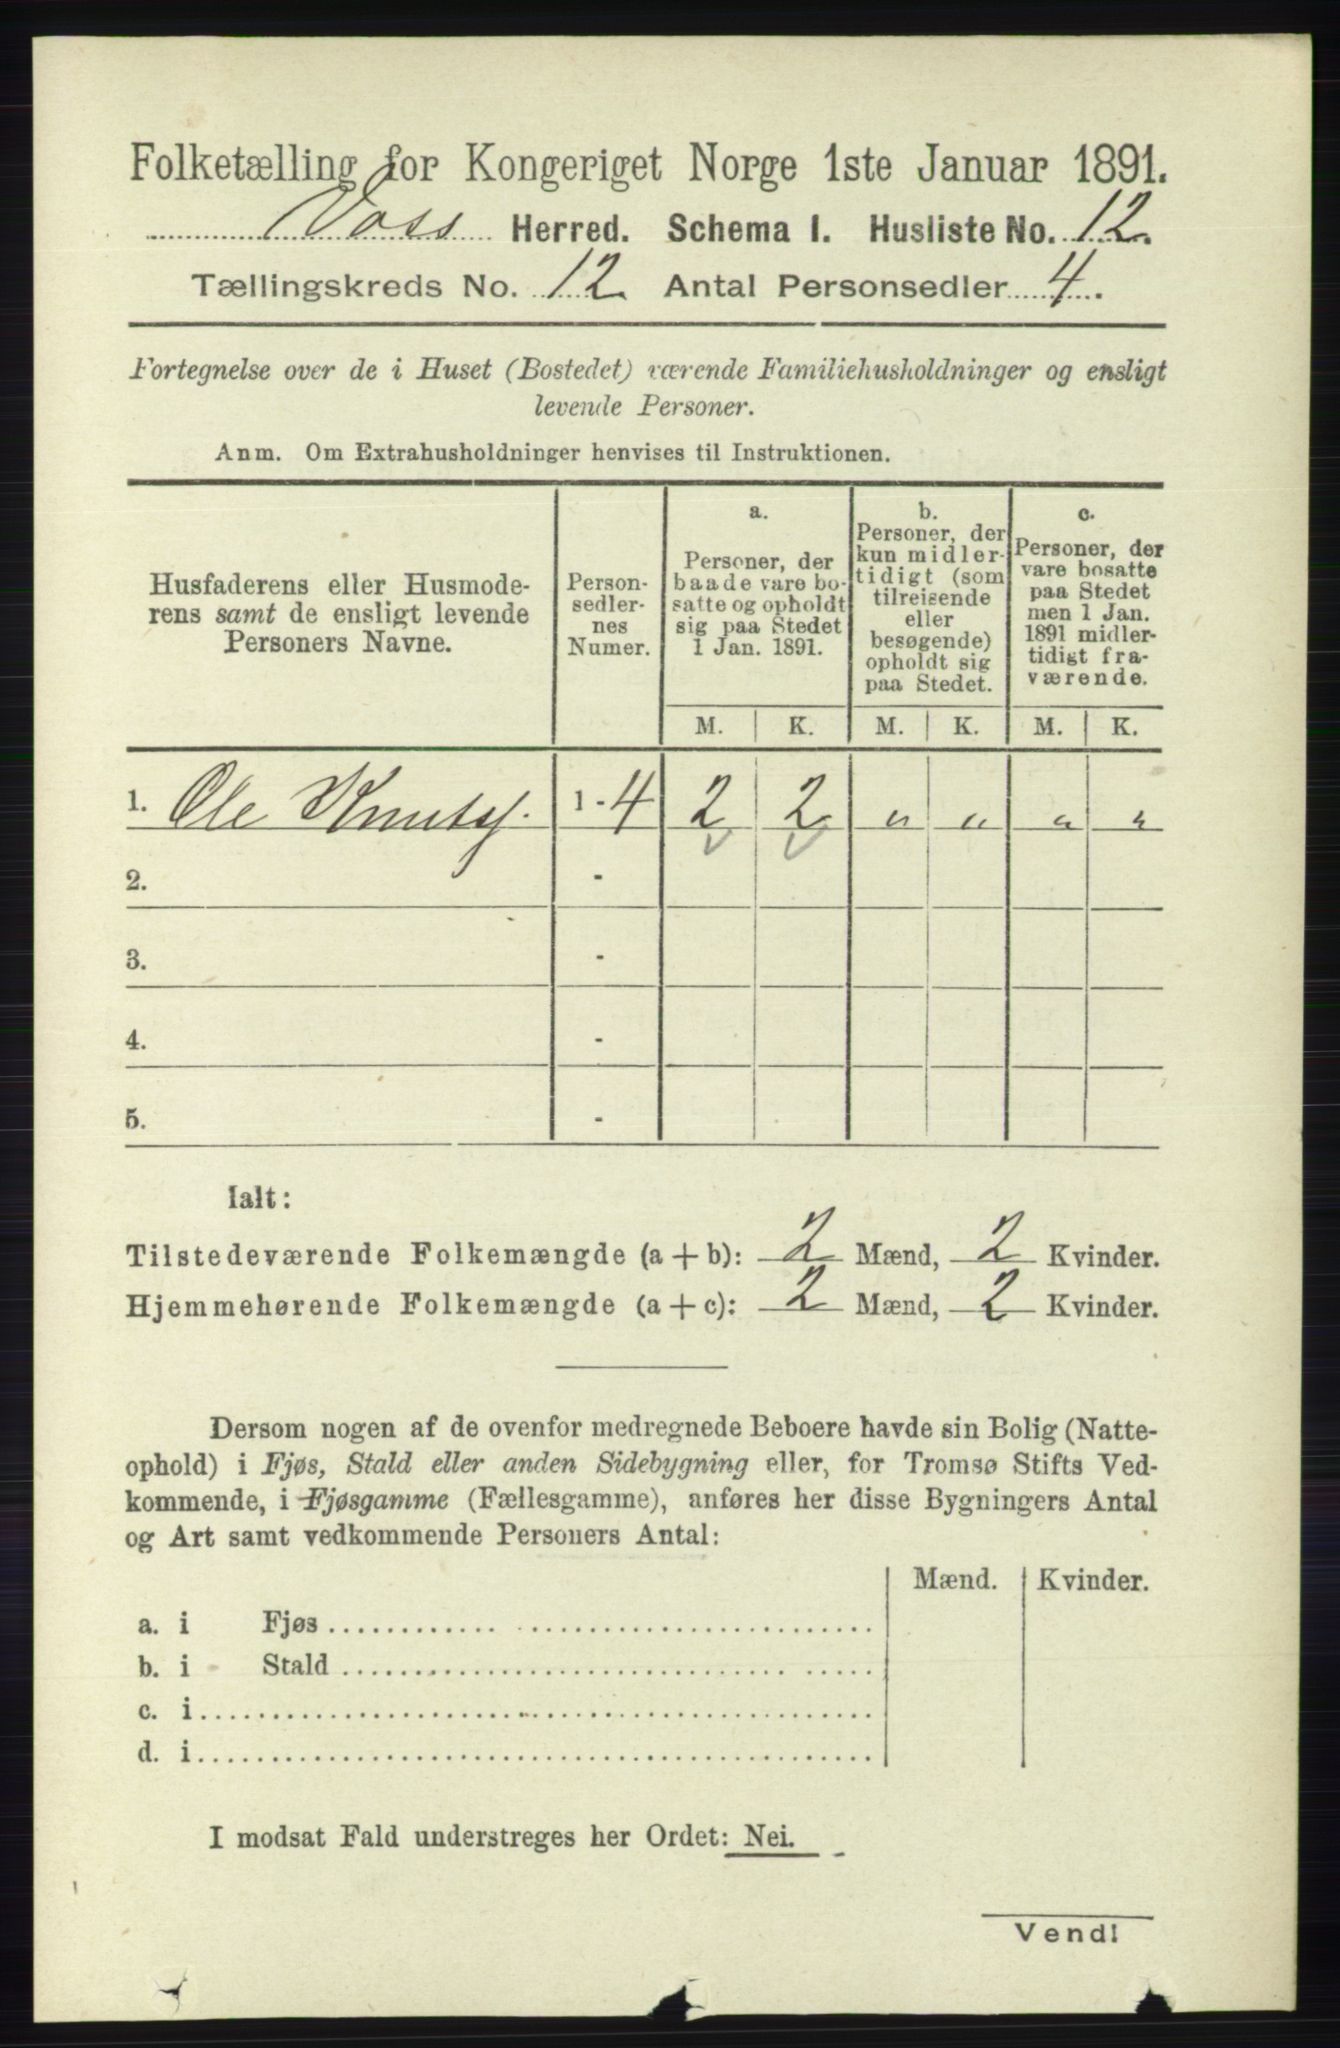 Folketælling for Kongeriget Norge 1ste Januar 1891.
Voss Herred. Schema I. Husliste No. 12.
Tællingskreds No. 12. Antal Personsedler 4.
Fortegnelse over de i Huset (Bostedet) værende Familiehusholdninger og ensligt
levende Personer.
Anm. Om Extrahusholdninger henvises til Instruktionen.
Husfaderens eller Husmode-
rens samt de ensligt levende
Personers Navne.
Person-
sedler-
nes
Numer.
a.
Personer, der
baade vare bo-
satte og opholdt
sig paa Stedet
1 Jan. 1891.
b.
Personer, der
kun midler-
tidigt (som
tilreisende
eller
besøgende)
opholdt sig
paa Stedet.
c.
Personer, der
vare bosatte
paa Stedet
men 1 Jan.
1891 midler-
tidigt fra-
værende.
M. K. M. K. M. K.
1. Ole Knutss. 1 - 4 2 2 " " " "
2. -
3. -
4. -
5. -
Ialt:
Tilstedeværende Folkemængde (a + b): 2 Mænd, 2 Kvinder.
Hjemmehørende Folkemængde (a + c): 2 Mænd, 2 Kvinder.
Dersom nogen af de ovenfor medregnede Beboere havde sin Bolig (Natte-
ophold) i Fjøs, Stald eller anden Sidebygning eller, for Tromsø Stifts Ved-
kommende, i Fjøsgamme (Fællesgamme), anføres her disse Bygningers Antal
og Art samt vedkommende Personers Antal:
Mænd. Kvinder.
a. i Fjøs
b. i Stald
c. i
d. i
I modsat Fald understreges her Ordet: Nei.
Vend!